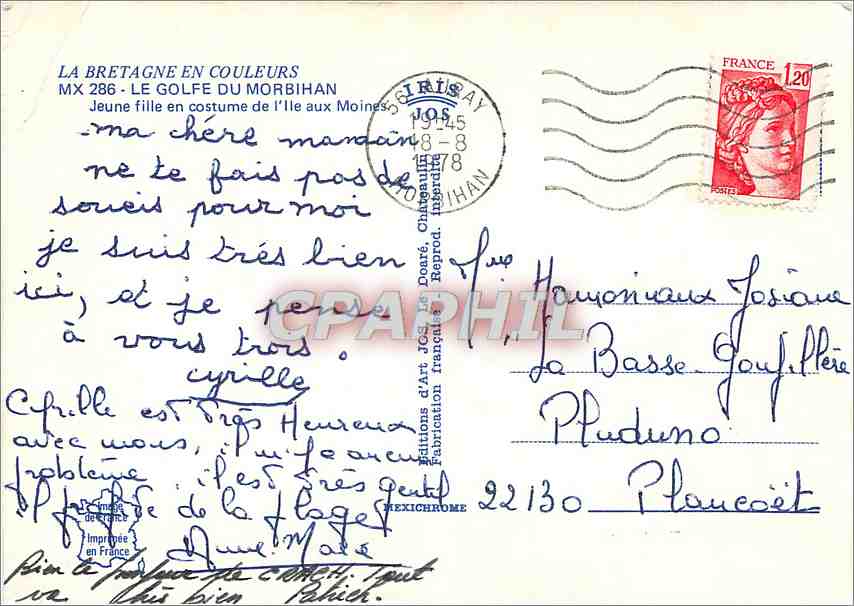 LA BRETAGNE EN COULEURS
MX 286 - LE GOLFE DU MORBIHAN
Jeune fille en costume de l'Ile aux Moines
ma chére maman
ne te fais pas de
soucis pour moi
je suis trés bien
ici, et je pense
à vous trois.
cyrille
Cyrille est très Heureux
avec nous, il n'y a aucun
problème, il est très gentil
il profite de la plage
Anne-Marie
Bien le bonjour de CRACH. Tout
va très bien Patrick.
Image
de France
Imprimée
en France
IRIS
JOS
Editions d'Art JOS, Le Doaré, Châteaulin
Fabrication française - Reprod. interdite
MEXICHROME
56 AURAY
19H45
18-8
1978
MORBIHAN
FRANCE
1,20
POSTES
Mme Hamoniaux Josiane
La Basse Goufillère
Pluduno
22130 Plancoët
CPAPHIL